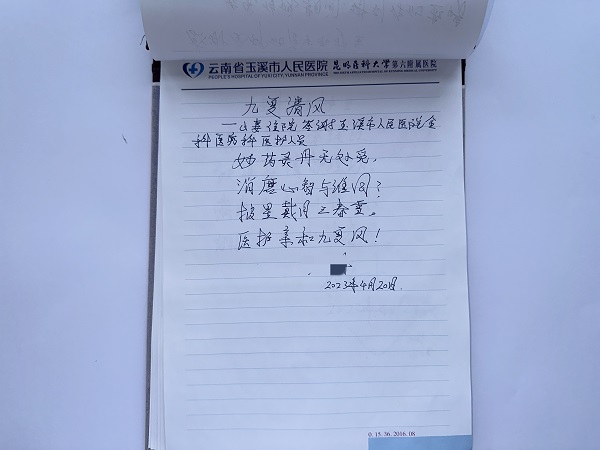 云南省玉溪市人民医院 昆明医科大学第六附属医院
PEOPLE'S HOSPITAL OF YUXI CITY, YUNNAN PROVINCE THE SIXTH AFFILIATED HOSPITAL OF KUNMING MEDICAL UNIVERSITY
九夏清风
——山妻住院答谢玉溪市人民医院全
科医疗科医护人员
妙药灵丹无处觅,
消磨心智与谁同?
披星戴月三春
医护亲和九夏风!
2023年4月20日.
0. 15.36. 2016.08